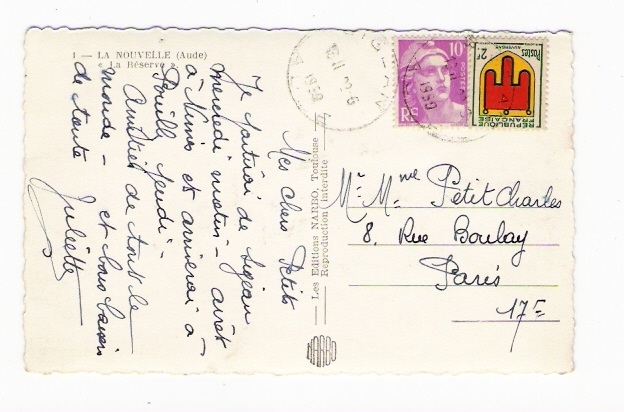 1 — LA NOUVELLE (Aude)
« La Réserve »
Mes chers Petits
Je partirai de Sigean
mercredi matin – arrêt
à Nimes et arriverai à
jeudi –
Amitiés de tout le
monde – et bons baisers
de tante Juliette
Les Editions NARBO, Toulouse
Reproduction interdite
NARBO
10F
RF
Postes
2F
AUVERGNE
REPUBLIQUE
FRANÇAISE
Mr. Mme Petit Charles
8, Rue Boulay
Paris
17E